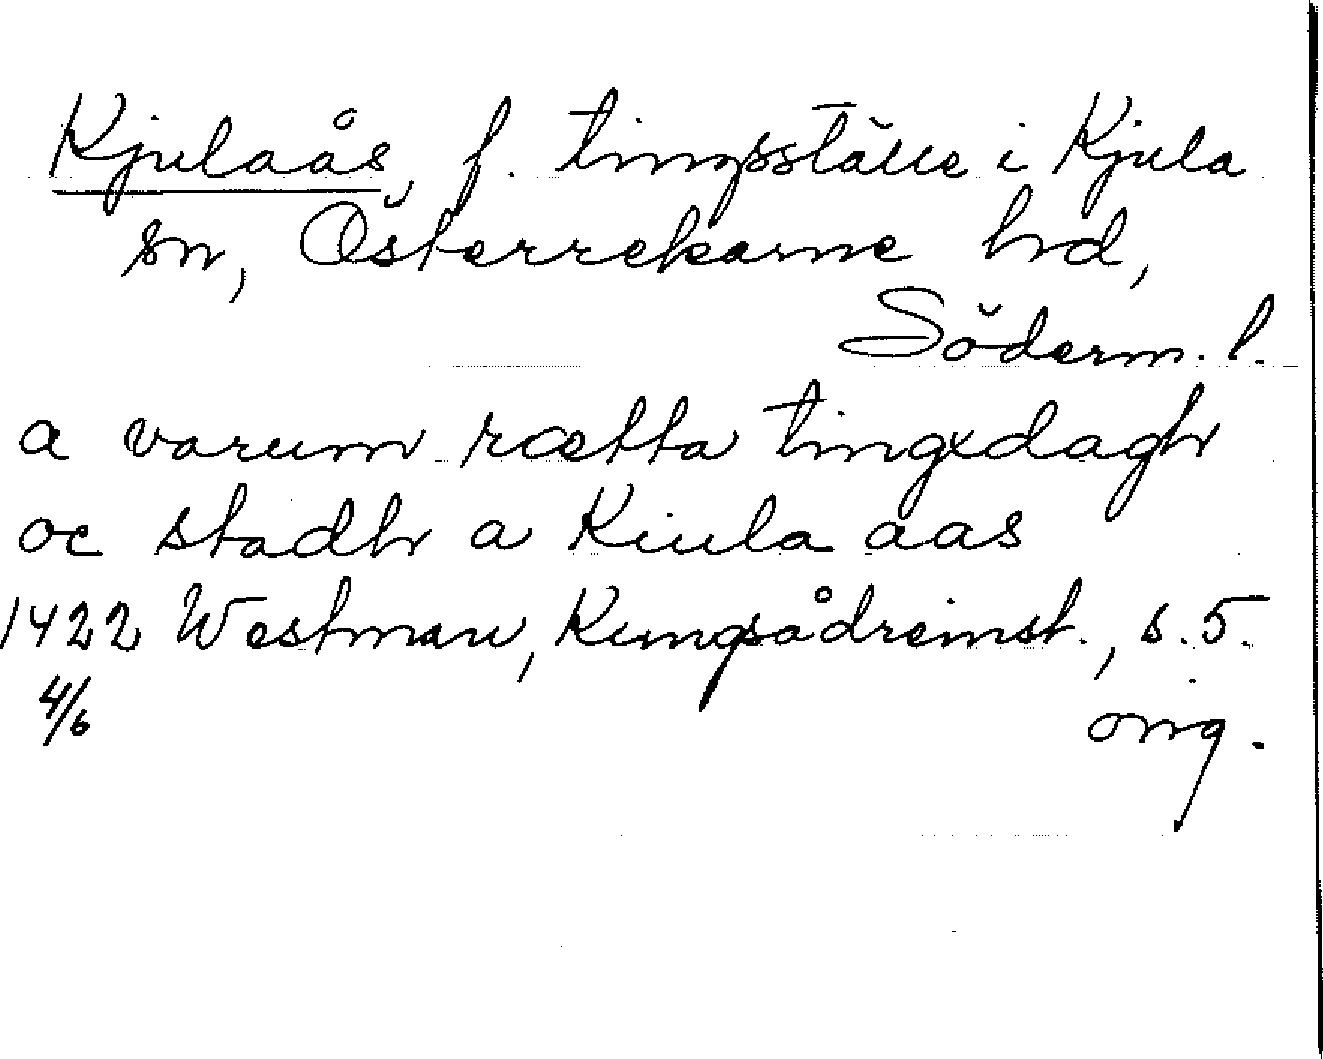 Kjulaås, f. tingsställe i Kjula
sn, Österrekarne hd,
Söderm. l.
a varum rætta tingxdagh
oc stadh a Kiula aas
1422 Westman, Kungsådreinst., s. 5.
4/6 orig.